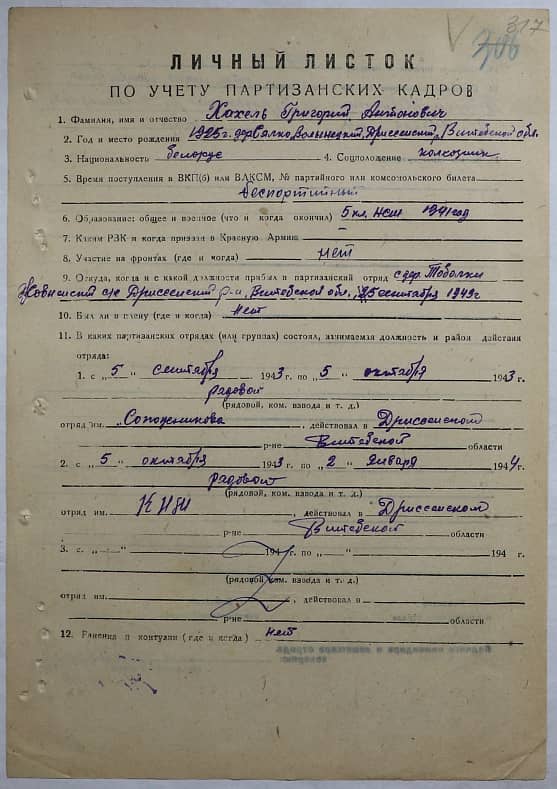 317
306
ЛИЧНЫЙ ЛИСТОК
ПО УЧЕТУ ПАРТИЗАНСКИХ КАДРОВ
1. Фамилия, имя и отчество Хохель Григорий Антонович
2. Год и место рождения 1925 г. дер. Волынецкий Дриссенский Витебской обл.
3. Национальность белорус 4. Соцположение колхозник
5. Время поступления в ВКП(б) или ВЛКСМ, № партийного или комсомольского билета
беспартийный
6. Образование: общее и военное (что и когда окончил) 5 кл. НСШ 1941 год
7. Каким РВК и когда призван в Красную Армию —
8. Участие на фронтах (где и когда) нет
9. Откуда, когда и с какой должности прибыл в партизанский отряд с дер.
с/с Дриссенский р-н, Витебской обл., 5 сентября 1943 г
10. Был ли в плену (где и когда) нет
11. В каких партизанских отрядах (или группах) состоял, занимаемая должность и район действия
отряда:
1. с „5“ сентября 1943 г. по „5“ октября 1943 г.
рядовой
(рядовой, ком. взвода и т. д.)
отряд им. Сапожникова, действовал в Дриссенском
р-не Витебской области
2. с „5“ октября 1943 г. по „2“ января 1944 г.
рядовой
(рядовой, ком. взвода и т. д.)
отряд им. КИМ, действовал в Дриссенском
р-не Витебской области
3. с „—“ 194 г. по „—“ 194 г.
(рядовой, ком. взвода и т. д.)
отряд им. , действовал в
р-не области
12. Ранения и контузии (где и когда) нет